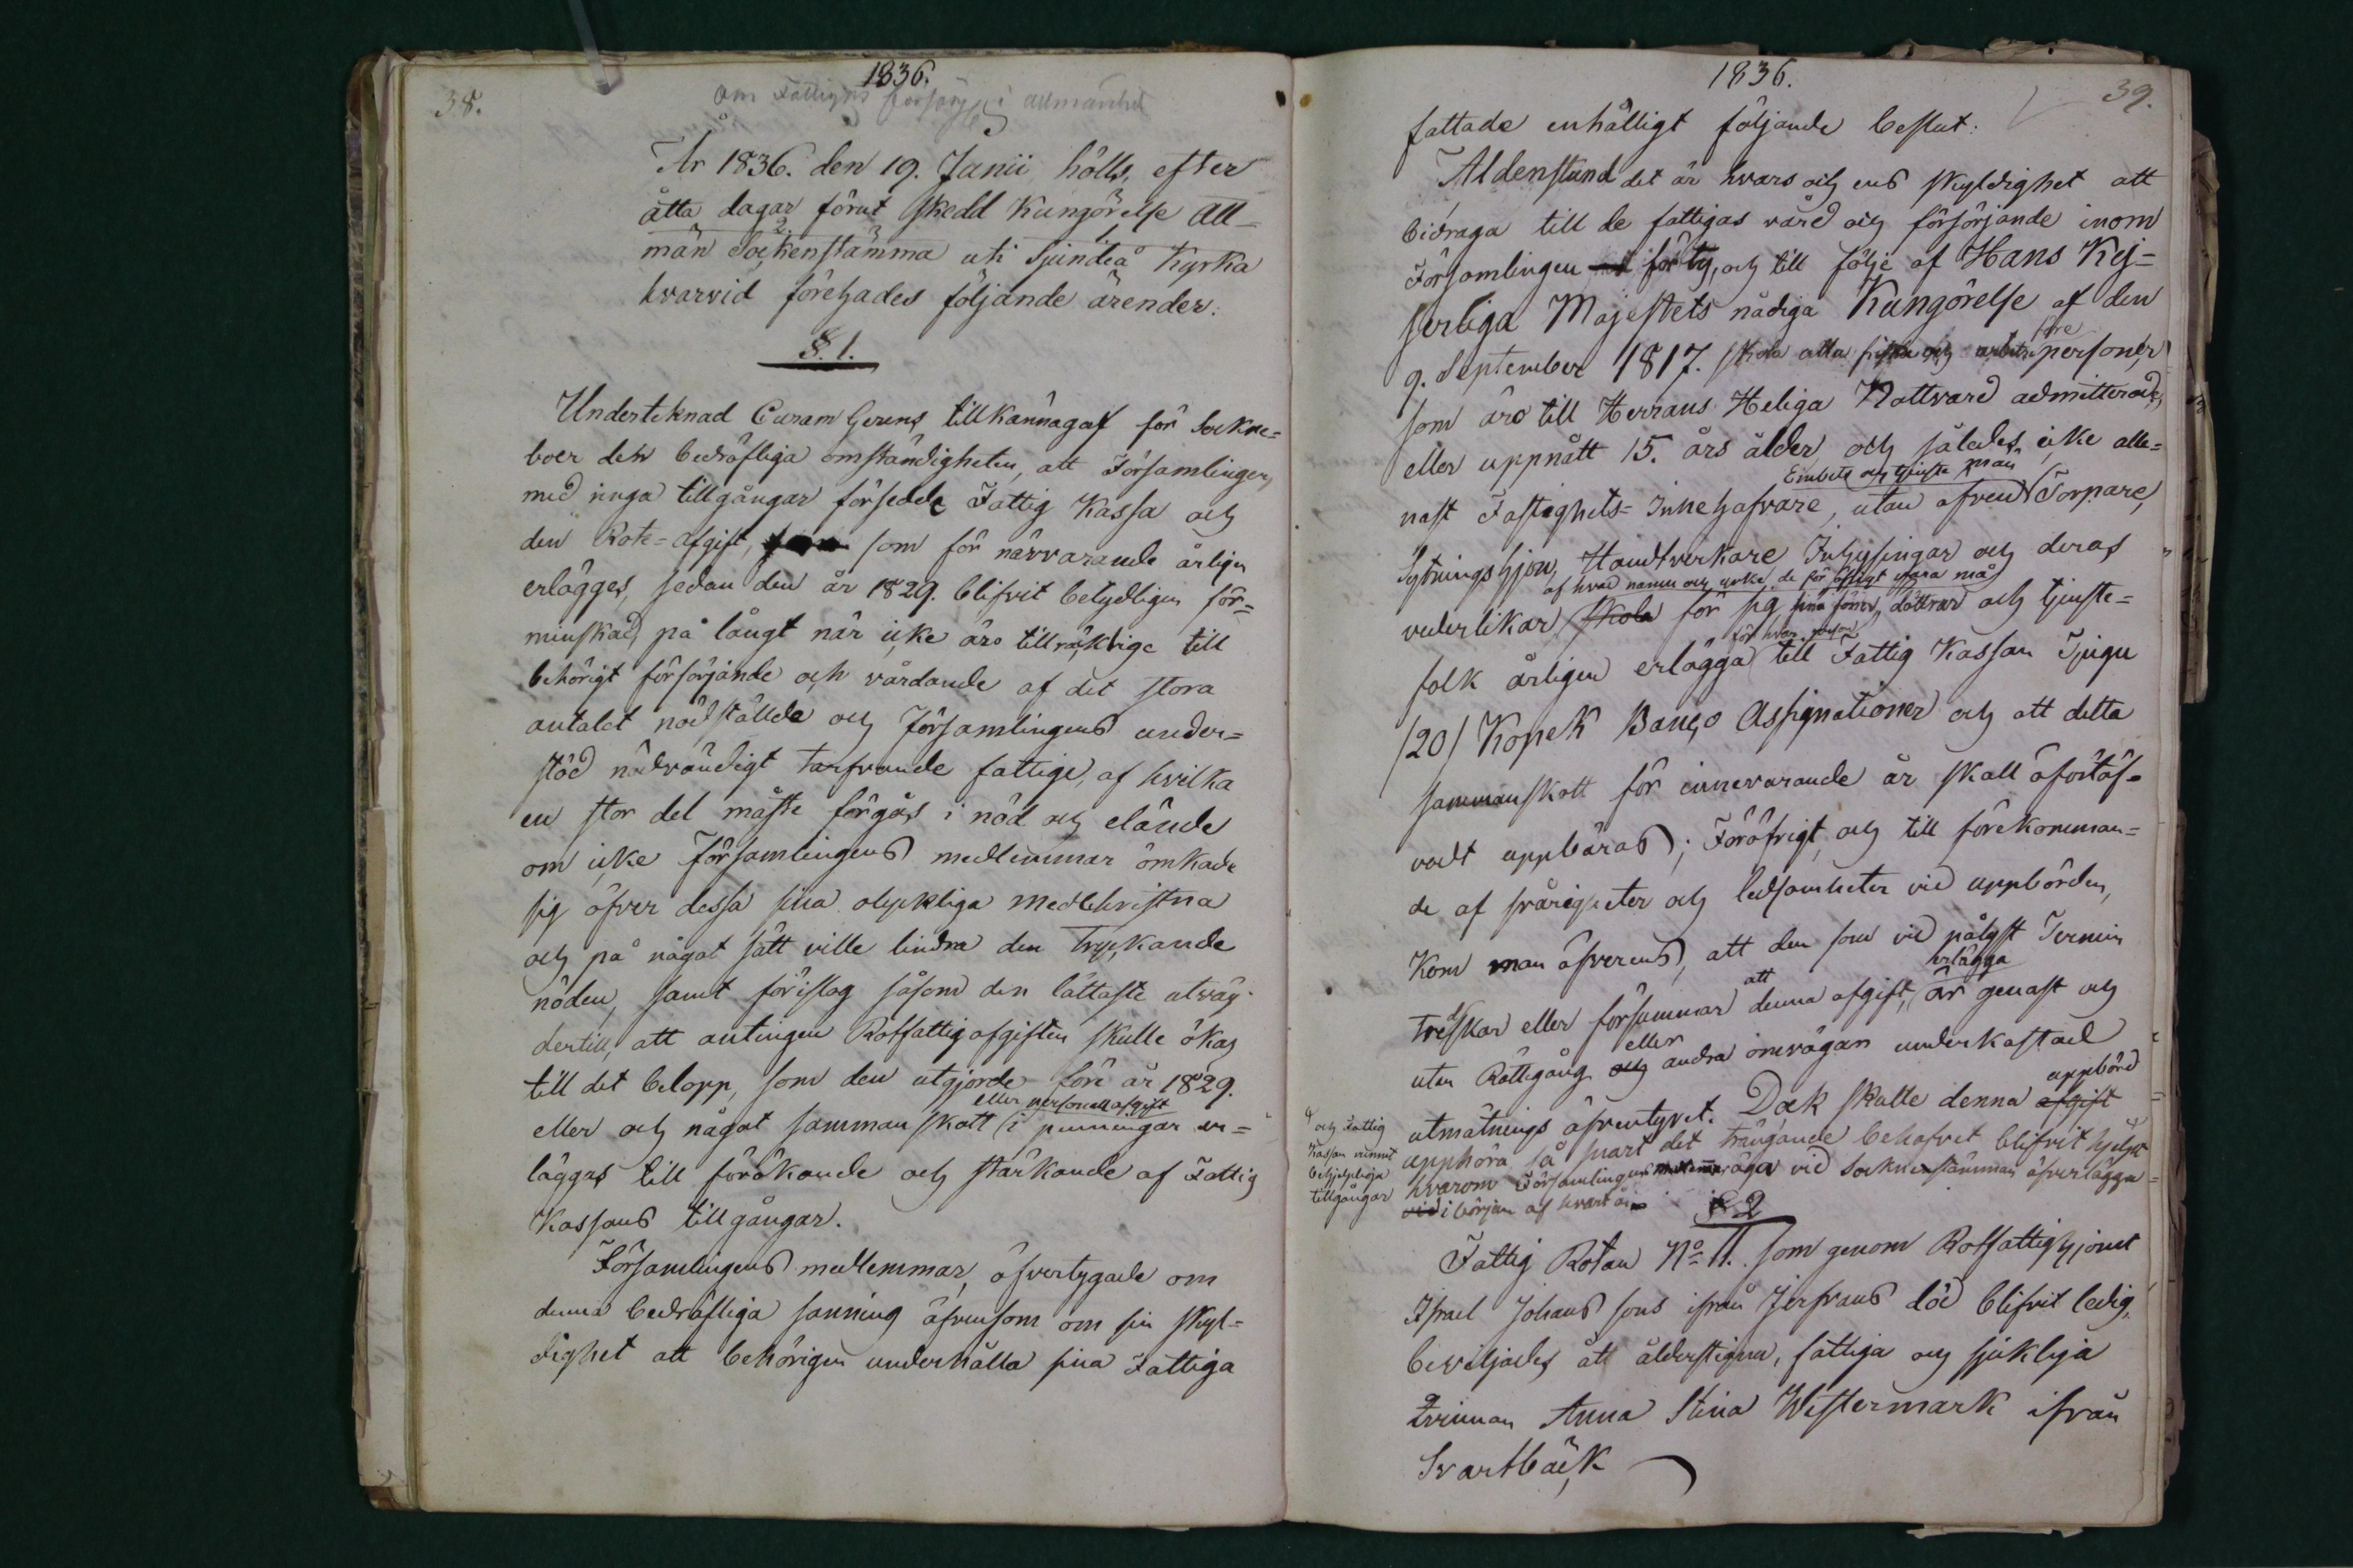 38.
1836.
Om Fattigas försörg i allmänhet
År 1836. den 19. Junii hölls, efter
åtta dagar förut skedd Kungörelse All-
män Sockenstämma uti Sjundeå Kyrka
hvarvid förehades följande ärender.
§. 1.
Underteknad Curam Gerens tillkännagaf för Sockne-
boer den bedröfliga omständigheten, att Församlingens
med ringa tillgångar försedde Fattig Kassa och
den Rote-afgift, som för närvarande årligen
erlägges, sedan den år 1829. blifvit betydligen för-
minskad, på långt när icke äro tillräcklige till
behörigt försörjande och vårdande af det stora
antalet nödställde och Församlingens under-
stöd nödvändigt tarfvande fattige, af hvilka
en stor del måste förgås i nöd och elände
om icke Församlingens medlemmar ömkade
sig öfver dessa sina olyckliga medchristna
och på något sätt ville lindra den tryckande
nöden, samt föreslog såsom den lättaste utväg
dertill, att antingen Rotfattigafgiften skulle ökas
till det belopp, som den utgjorde före år 1829.
eller personellafgift
eller och något sammanskott i penningar er-
läggas till förökande och stärkande af Fattig
Kassans tillgångar.
Församlingens medlemmar, öfvertygade om
denna bedröfliga sanning äfvensom om sin skyl-
dighet att behörigen underhålla sina Fattiga
1836.
39.
fattade enhälligt följande beslut:
Aldenstund det är hvars och ens skyldighet att
bidraga till de fattigas vård och försörjande inom
Församlingen för ty, och till följe af Hans Kej-
serliga Majestets nådiga Kungörelse af den
före
9. September 1817. skola alla friska och arbets personer,
som äro till Herrans Heliga Nattvard admitterade,
eller uppnått 15. års ålder, och således icke alle-
Embets och tjenste män
nast Fastighets-Innehafvare, utan äfven Torpare,
Sytningshjon, Handtverkare Inhysingar och deras
af hvad namn och yrke de för öfrigt vara må
vederlikar skola för sig sina söner, döttrar och tjenste-
för hvar person
folk årligen erlägga till Fattig Kassan Tjugu
/20/ Kopek Banco Assignationer och att detta
sammanskott för innevarande år skall oförtöf-
vadt uppbäras; Föröfrigt, och till förekomman-
de af svårigheter och ledsamheter vid uppbörden,
Kom man öfverens, att den som vid pålyst Termin
att erlägga
tredskar eller försummar denna afgift, är genast och
eller
utan Rättegång och andra omvägar underkastad
uppbörd
utmätnings äfventyret. Dock skulle denna afgift
och Fattig
Kassan vunnit
behjelpliga
tillgångar
upphöra så snart det trängande behofvet blifvit hjelpt
hvarom Församlingens medlemmar äga vid Socknestämman öfverlägga
vid i början af hvart år
§ 2
Fattig Rotan No 11. som genom Rotfattighjonet
Israel Johans sons ifrån Jerfvans död blifvit ledig,
beviljades åt ålderstigna, fattiga och sjukliga
Qvinnan Anna Stina Westermark ifrån
Svartbäck